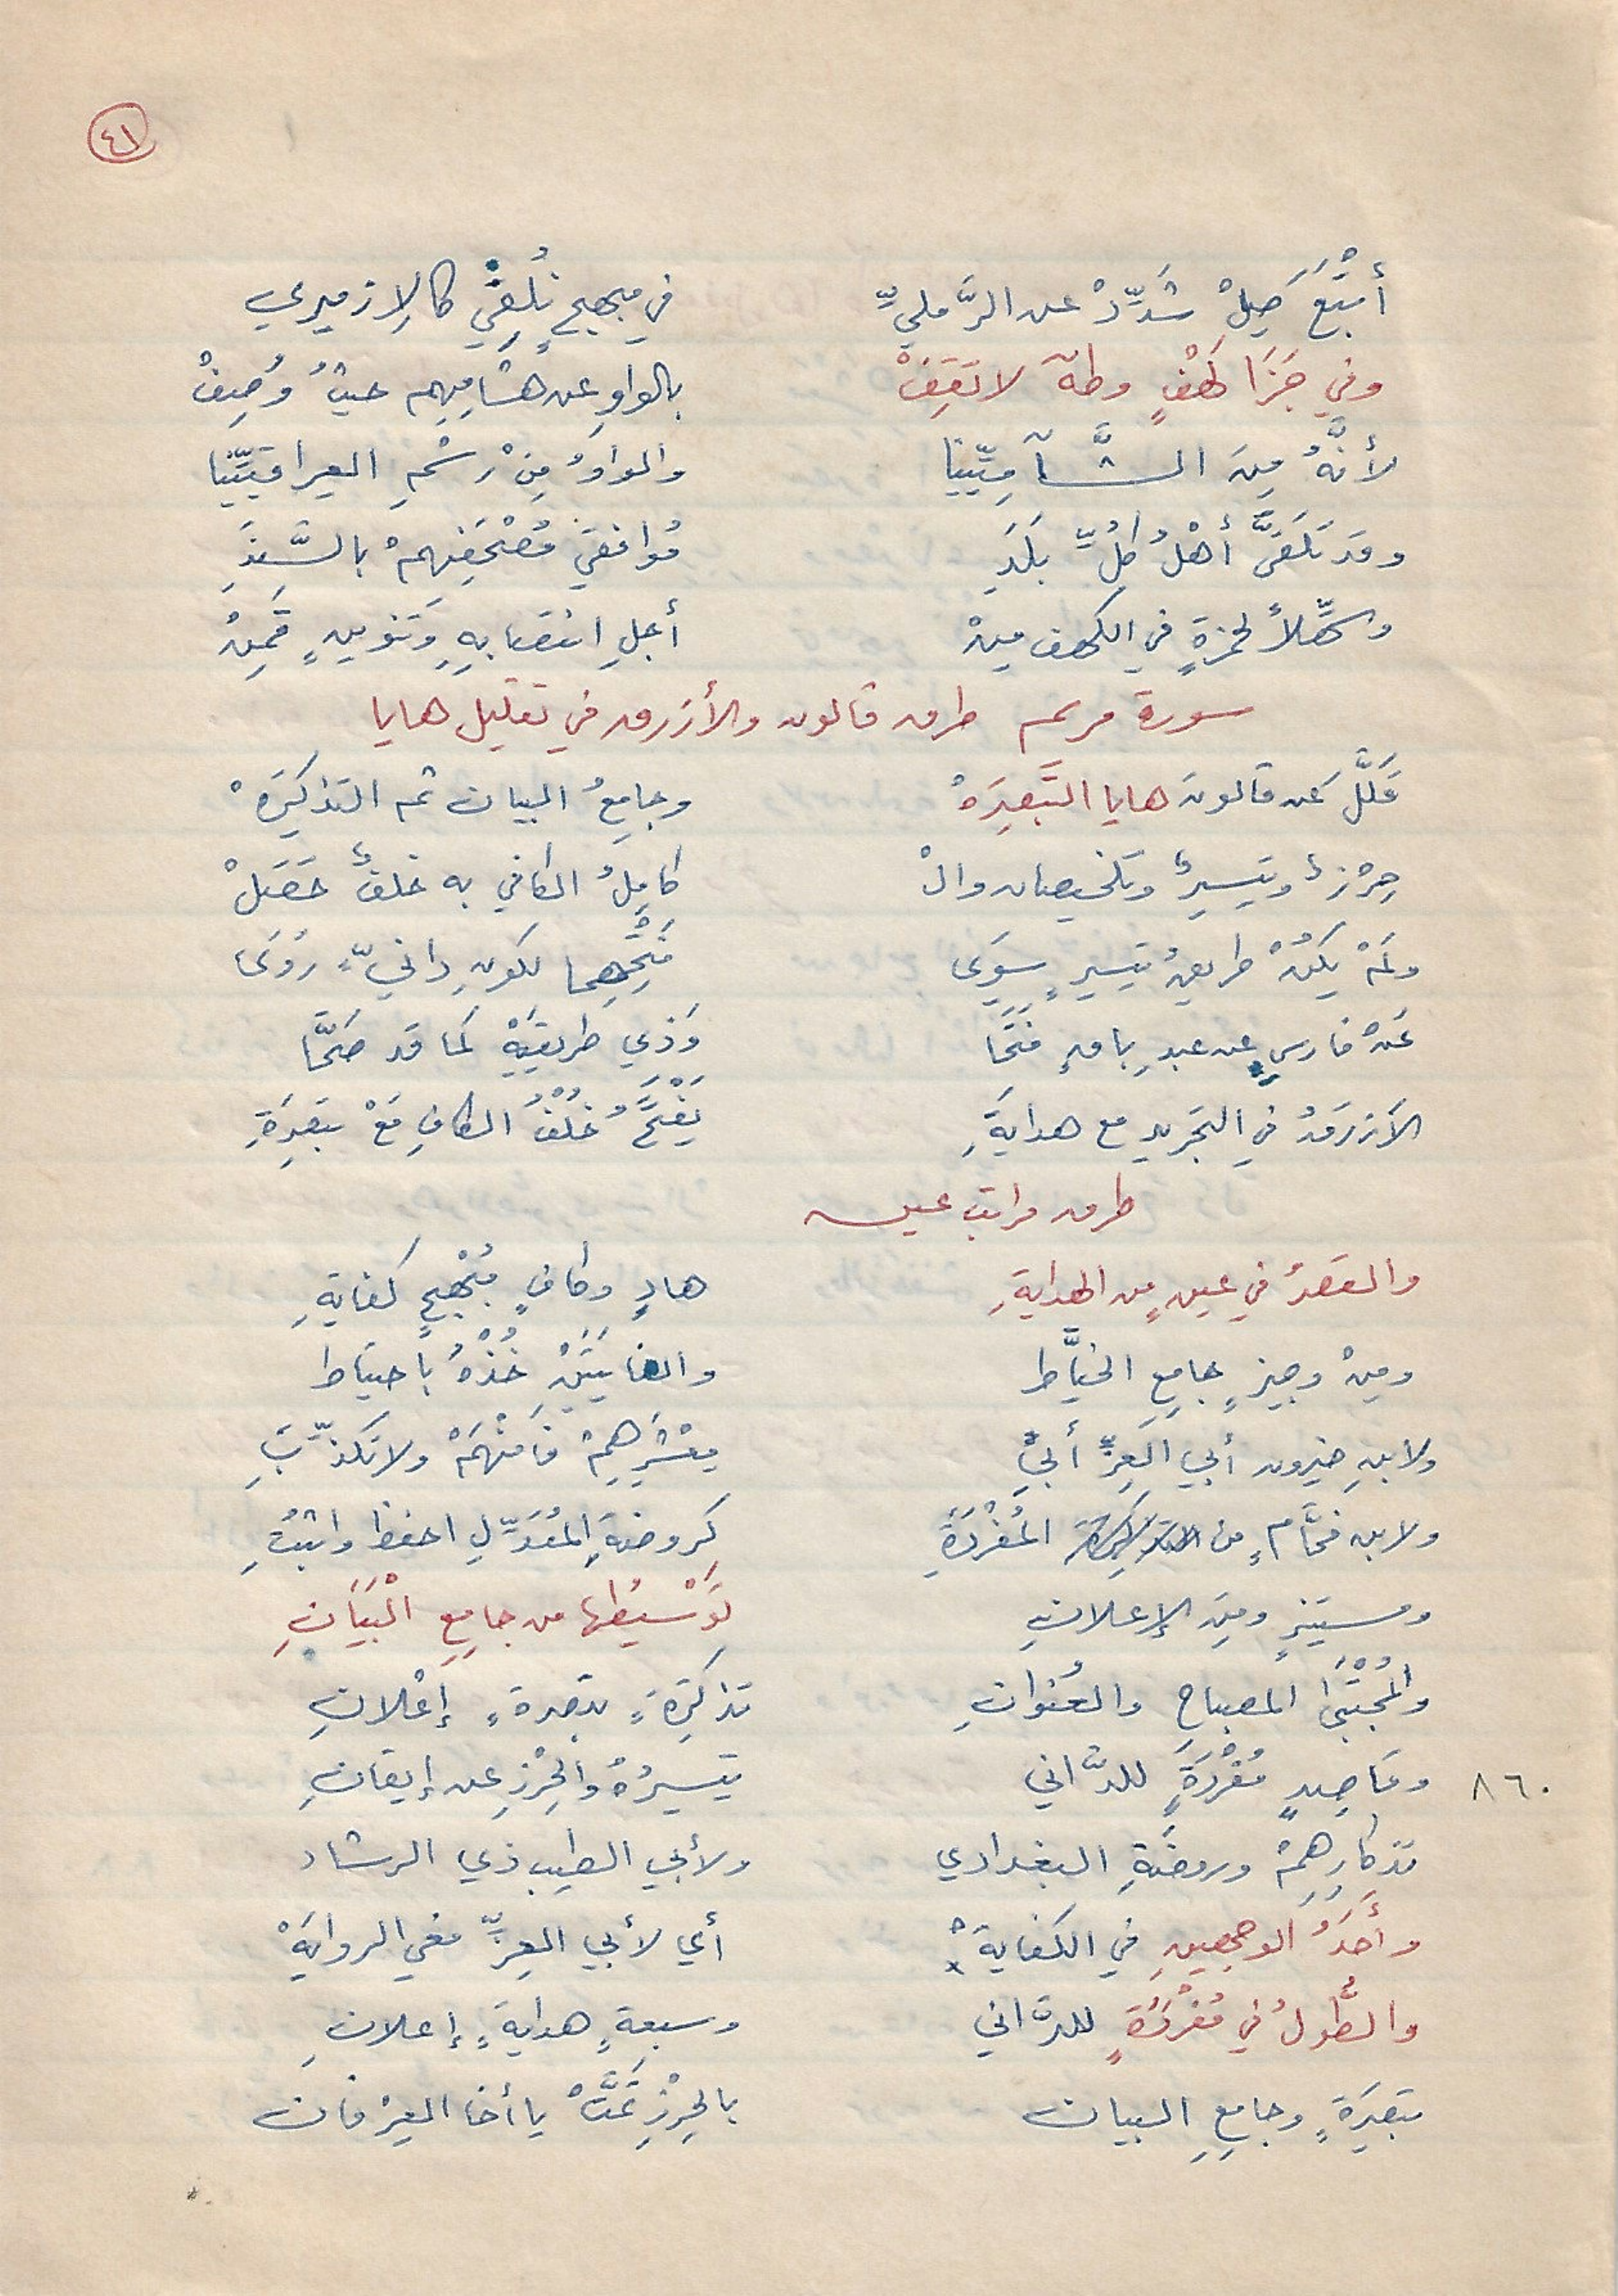 ٤١
أَتْبَعَ صِلْ شَدِّدْ عن الرَّمليِّ في مبهجٍ نُلْفِي كالإزميري
وفي جَزَا كَهْفٍ وطهَ لا تَقِفْ بالواوِ عن هشامِهِم حيثُ وُصِفْ
لأنَّهُ مِنَ الشَّآمِيِّينا والواوُ مِنْ رسْمِ العِراقيِّينا
وقد تلقَّى أهْلُ كلِّ بلَدِ مُوافقَي مُصْحَفِهمْ بالسَّنَدِ
وسَهِّلاً لحمزةٍ في الكهف مِنْ أجلِ انتصابِهِ وَتنوينٍ قَمِنْ
سورة مريم طرق قالون والأزرق في تقليل هايا
قَلَّلَ عَن قالونَ هايا التَّبصِرَهْ وجامعُ البيان ثم التذكِرَهْ
حِرْزٌ وتيسيرٌ وتلخيصان والْ كامِلُ الكافي به خلفٌ حَصَلْ
ولَمْ يَكُنْ طريقُ تيسيرٍ سِوَى فتْحِهِما لكونِ دانيٍّ رَوَى
عَنْ فارسٍ عن عبدِ باقٍ فتَحَا وَذي طريقَتِهْ كما قد صَحَّا
الأزرَقُ في التجريد مع هدايَةِ يَفْتَحُ خُلْفُ الكافِ مَعْ تبصِرَةِ
طرق مراتب عين
والقصرُ في عينٍ من الهدايةِ هادٍ وكافٍ مُبْهِجٍ كفايةِ
ومِنْ وجيزٍ جامعِ الخيَّاط والغايتَيْنِ خُذْهُ باحتياط
ولابنِ خيرون أبي العِزِّ أُبَيْ بِعْشْرِهِمْ فافْهَمْ ولا تكذِّبِ
ولابن فحَّامٍ من المُفْرَدَةِ كروضةِ المُعَدِّلِ احفظ واثبُتِ
ومستنيرٍ ومِنَ الإعلانِ تَوْسِيطُها من جامِعِ الْبَيَانِ
والمُجْتَبَى المصباحِ والعُنوانِ تذكِرَةٍ تبصرةٍ إعْلانِ
٨٦٠ وقاصِدٍ مُفْرَدَةٍ للدَّاني تيسيرُهُ والحِرْزِ عن إيقانِ
تذكارِهِمْ وروضَةِ البغدادي ولأبي الطيب ذي الرشاد
وأَحَدُ الوجهينِ في الكفايةْ أي لأبي العِزِّ ففي الروايهْ
والطُّولُ في مُفْرَدَةٍ للدَّاني وسبعةٍ هدايةٍ إعلانِ
تبصِرَةٍ وجامِعِ البيان بالحِرْزِ تَمَّتْ يا أخا العِرْفان